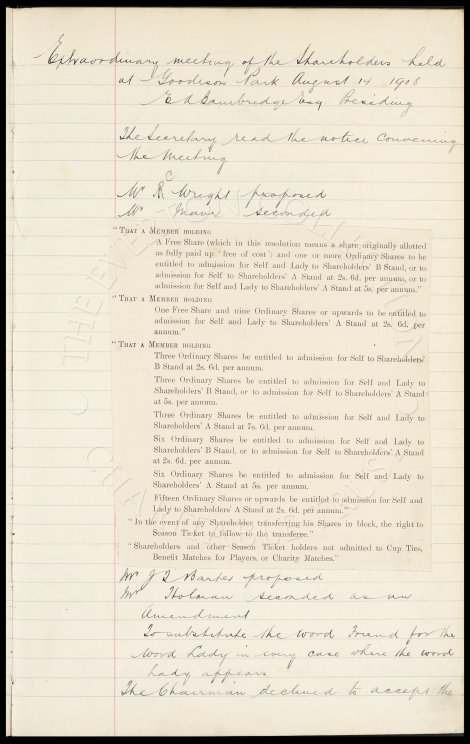 Extraordinary meeting of the Shareholders held
at Goodison Park August 14 1908
E A Bainbridge Esq Presiding
The Secretary read the notice convening
the Meeting
C
Mr R Wright proposed
Mr seconded
"THAT A MEMBER HOLDING
A Free Share (which in this resolution means a share originally allotted
as fully paid up 'free of cost') and one or more Ordinary Shares to be
entitled to admission for Self and Lady to Shareholders' B Stand, or to
admission for Self to Shareholders' A Stand at 2s. 6d. per annum, or to
admission for Self and Lady to Shareholders' A Stand at 5s. per annum."
"THAT A MEMBER HOLDING
One Free Share and nine Ordinary Shares or upwards to be entitled to
admission for Self and Lady to Shareholders' A Stand at 2s. 6d. per
annum."
"THAT A MEMBER HOLDING
Three Ordinary Shares be entitled to admission for Self to Shareholders'
B Stand at 2s. 6d. per annum.
Three Ordinary Shares be entitled to admission for Self and Lady to
Shareholders' B Stand, or to admission for Self to Shareholders' A Stand
at 5s. per annum.
Three Ordinary Shares be entitled to admission for Self and Lady to
Shareholders' A Stand at 7s. 6d. per annum.
Six Ordinary Shares be entitled to admission for Self and Lady to
Shareholders' B Stand, or to admission for Self to Shareholders' A Stand
at 2s. 6d. per annum.
Six Ordinary Shares be entitled to admission for Self and Lady to
Shareholders' A Stand at 5s. per annum.
Fifteen Ordinary Shares or upwards be entitled to admission for Self and
Lady to Shareholders' A Stand at 2s. 6d. per annum."
"In the event of any Shareholder transferring his Shares in block, the right to
Season Ticket to follow to the transferee."
"Shareholders and other Season Ticket holders not admitted to Cup Ties,
Benefit Matches for Players, or Charity Matches."
Mr J I Barker proposed
Mr Holman seconded as an
Amendment
To substitute the word Friend for the
word Lady in every case where the word
Lady appears
The Chairman declined to accept the